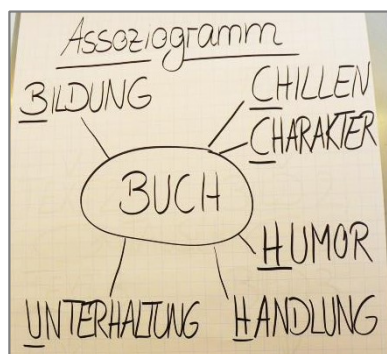 Assoziogramm
BILDUNG
CHILLEN
CHARAKTER
BUCH
HUMOR
UNTERHALTUNG
HANDLUNG